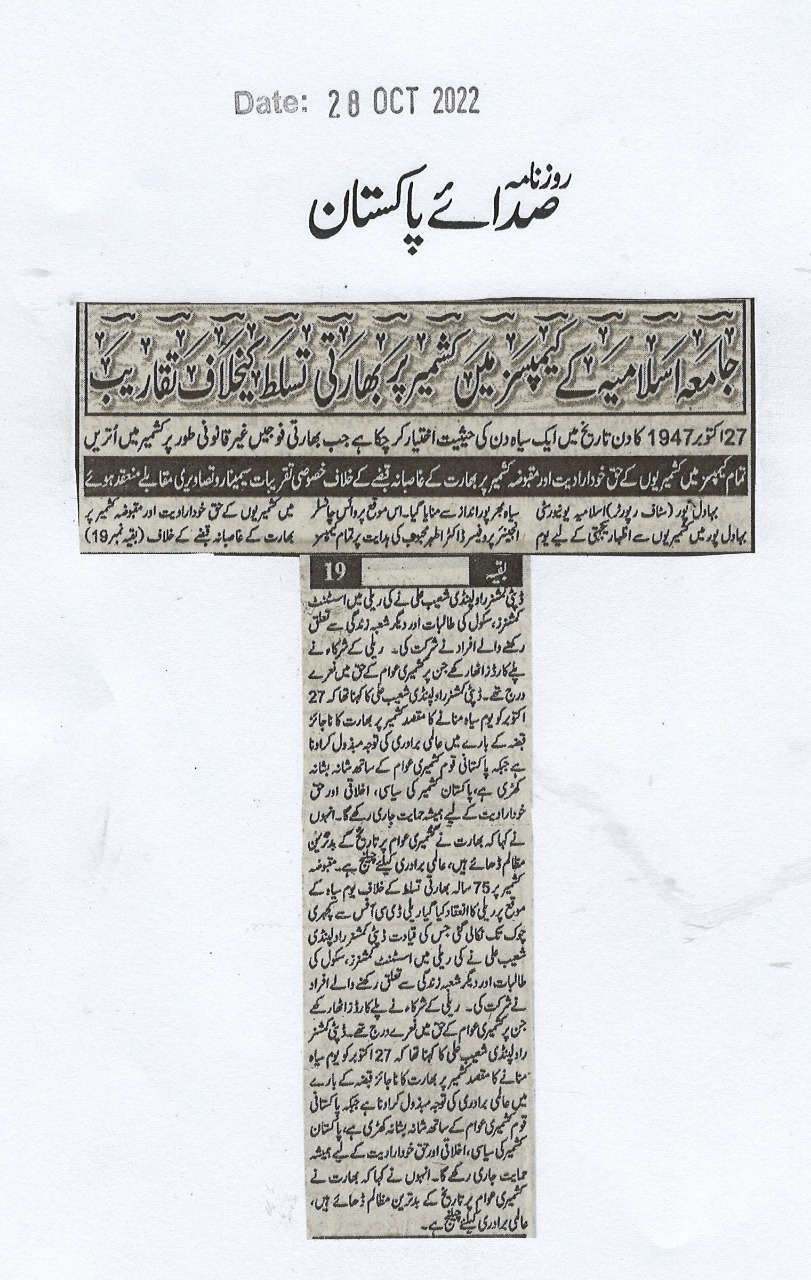 Date: 28 OCT 2022
روزنامہ
صدائے پاکستان
جامعہ اسلامیہ کے کیمپسز میں کشمیر پر بھارتی تسلط کیخلاف تقاریب
27 اکتوبر 1947 کا دن تاریخ میں ایک سیاہ دن کی حیثیت اختیار کر چکا ہے جب بھارتی فوجیں غیر قانونی طور پر کشمیر میں اُتریں
تمام کیمپسز میں کشمیریوں کے حق خودارادیت اور مقبوضہ کشمیر پر بھارت کے غاصبانہ قبضے کے خلاف خصوصی تقریبات سیمینار و تصاویری مقابلے منعقد ہوئے
بہاول پور (سٹاف رپورٹر) اسلامیہ یونیورسٹی
بہاول پور میں کشمیریوں سے اظہار یکجہتی کے لیے یوم
سیاہ بھرپور انداز سے منایا گیا۔ اس موقع پر وائس چانسلر
انجینئر پروفیسر ڈاکٹر اطہر محبوب کی ہدایت پر تمام کیمپسز
میں کشمیریوں کے حق خودارادیت اور مقبوضہ کشمیر پر
بھارت کے غاصبانہ قبضے کے خلاف (بقیہ نمبر 19)
بقیہ 19
ڈپٹی کمشنر راولپنڈی شعیب علی نے کی ریلی میں اسسٹنٹ
کمشنرز، سکول کی طالبات اور دیگر شعبہ زندگی سے تعلق
رکھنے والے افراد نے شرکت کی۔ ریلی کے شرکاء نے
پلے کارڈز اٹھا رکھے جن پر کشمیری عوام کے حق میں نعرے
درج تھے۔ ڈپٹی کمشنر راولپنڈی شعیب علی کا کہنا تھا کہ 27
اکتوبر کو یوم سیاہ منانے کا مقصد کشمیر پر بھارت کا ناجائز
قبضہ کے بارے میں عالمی برادری کی توجہ مبذول کرادنا
ہے جبکہ پاکستانی قوم کشمیری عوام کے ساتھ شانہ بشانہ
کھڑی ہے، پاکستان کشمیر کی سیاسی، اخلاقی اور حق
خودارادیت کے لیے ہمیشہ حمایت جاری رکھے گا۔ انہوں
نے کہا کہ بھارت نے کشمیری عوام پر تاریخ کے بدترین
مظالم ڈھائے ہیں، عالمی برادری کیلئے چیلنج ہے۔ مقبوضہ
کشمیر پر 75 سالہ بھارتی تسلط کے خلاف یوم سیاہ کے
موقع پر ریلی کا انعقاد کیا گیا ریلی ڈی سی آفس سے کچہری
چوک تک نکالی گئی جس کی قیادت ڈپٹی کمشنر راولپنڈی
شعیب علی نے کی ریلی میں اسسٹنٹ کمشنرز، سکول کی
طالبات اور دیگر شعبہ زندگی سے تعلق رکھنے والے افراد
نے شرکت کی۔ ریلی کے شرکاء نے پلے کارڈز اٹھا رکھے
جن پر کشمیری عوام کے حق میں نعرے درج تھے۔ ڈپٹی کمشنر
راولپنڈی شعیب علی کا کہنا تھا کہ 27 اکتوبر کو یوم سیاہ
منانے کا مقصد کشمیر پر بھارت کا ناجائز قبضہ کے بارے
میں عالمی برادری کی توجہ مبذول کرادنا ہے جبکہ پاکستانی
قوم کشمیری عوام کے ساتھ شانہ بشانہ کھڑی ہے، پاکستان
کشمیر کی سیاسی، اخلاقی اور حق خودارادیت کے لیے ہمیشہ
حمایت جاری رکھے گا۔ انہوں نے کہا کہ بھارت نے
کشمیری عوام پر تاریخ کے بدترین مظالم ڈھائے ہیں،
عالمی برادری کیلئے چیلنج ہے۔